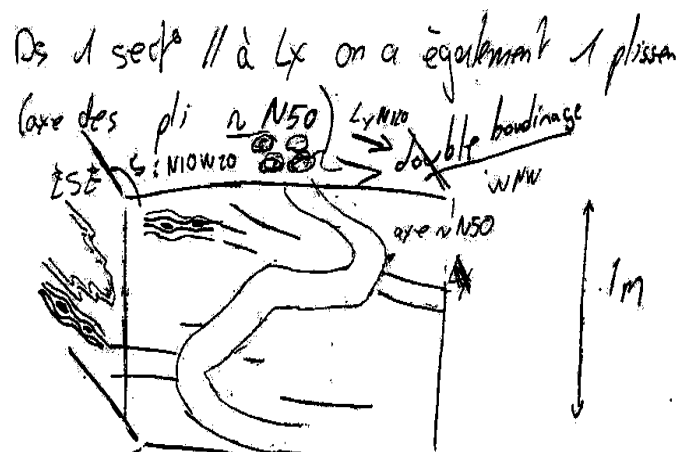 Ds 1 sect° // à Lx on a également 1 plissem
(axe des pli ~ N50) Lx N120 double boudinage
ESE S: N10W20 WNW
axe ~ N50
1m